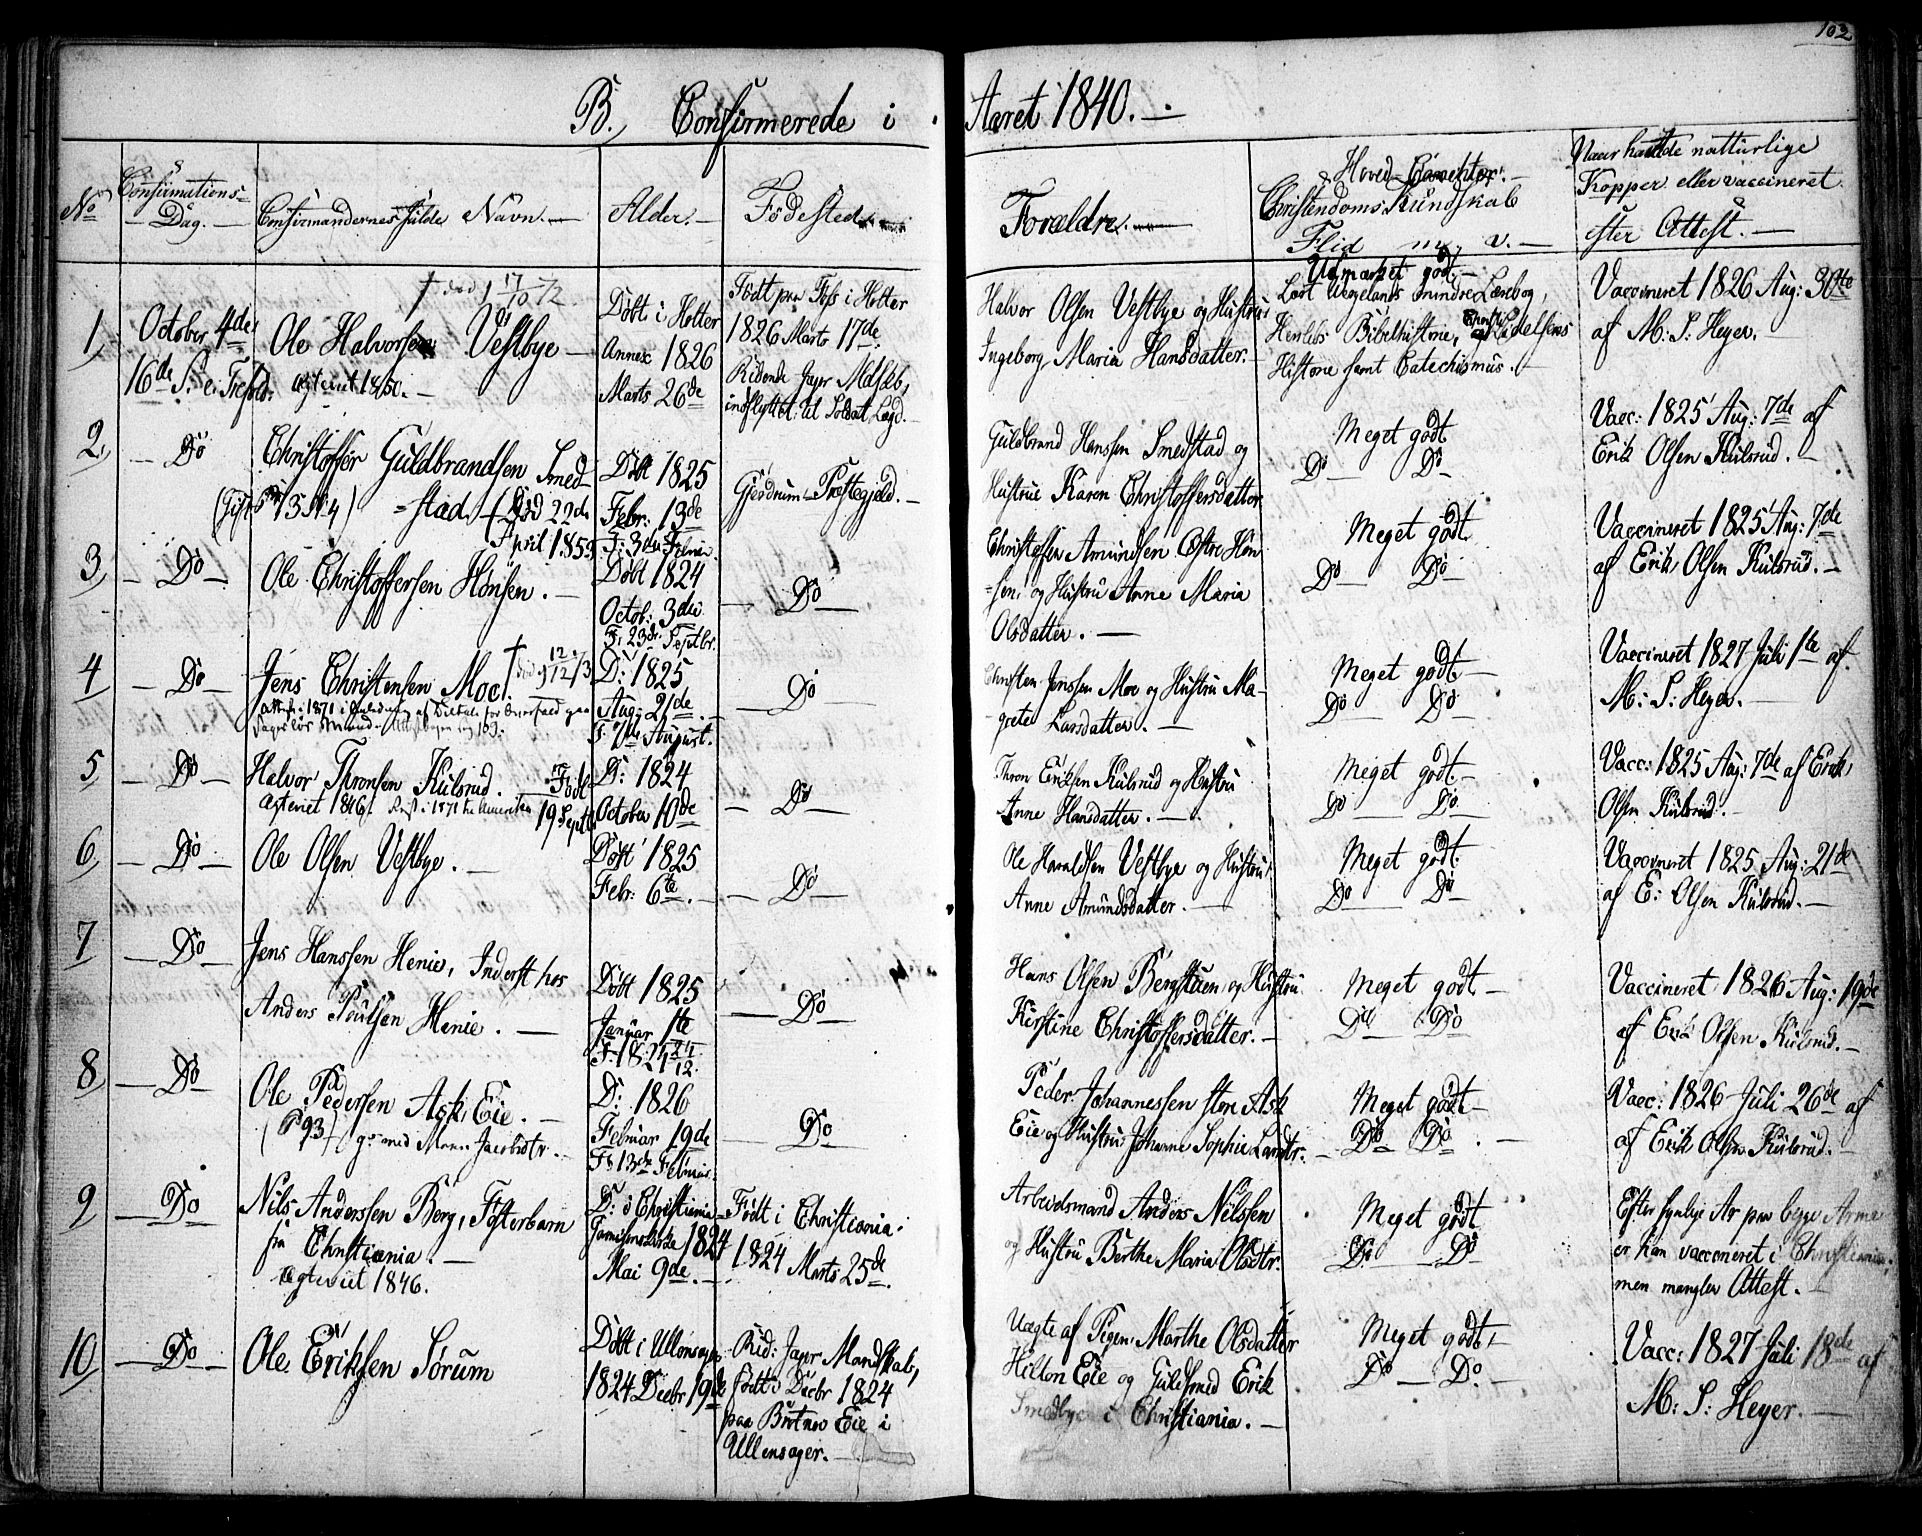 102
B. Confirmerede i Aaret 1840.
No
Confirmations-
Dag.
Confirmandernes fulde Navn.
Alder.
Fødested.
Forældre.
Hoved-Caracter.
Christendoms Kundskab
Flid m. v.
Naar havde natturlige
Kopper eller vaccineret
efter Attest.
1,
October 4de
16de S. e. Trefold:
† død 17/10 72
Ole Halvorsen Vestbye
ægteviet 1850.
Døbt i Holter
Annex 1826
Marts 26de
Født paa Føss i Holter
1826 Marts 17de.
Ridende Jæger Mdskb,
indflyttet til Soldat Lægd.
Halvor Olsen Vestbye og Hustru
Ingeborg Maria Hansdatter.
Udmærket godt.
Læst Wegelands mindre Lærebog,
Herslebs Bibelhistorie,
Historie samt Catechismus.
Vaccineret 1826 Aug: 30te
af M: S: Heyer.
2,
Do
Christoffer Guldbrandsen Smed-
=stad. (Død 22de
April 1853
Døbt 1825
Febr: 13de
F: 3die Febru.
Gjerdrum Præstegjeld.
Guldbrand Hanssen Smedstad og
Hustrue Karen Christoffersdatter
Meget godt
Do Do
Vacc: 1825 Aug: 7de af
Erik Olsen Kulsrud.
3,
Do
Ole Christoffersen Hønsen.
Døbt 1824
Octob: 3die
F: 23de Septbr.
Do
Christoffer Amundsen Østre Høn-
=sen, og Hustru Anne Maria
Olsdatter.
Meget godt
Do Do
Vaccineret 1825 Aug: 7de
af Erik Olsen Kulsrud.
4,
Do
† død 9 12/12 73
Jens Christensen Moe.
D: 1825
Aug: 21de
F. 7de August.
Do
Christen Jenssen Moe og Hustru Ma-
grete Larsdatter.
Meget godt
Do Do
Vaccineret 1827 Juli 1te af
M: S: Heyer.
5,
Do
Halvor Thronsen Kulsrud. Født
ægteviet 1846. Reist i 1871 til Amerika 19 Septb.
D: 1824
October 10de
Do
Thron Eriksen Kulsrud og Hustru
Anne Hansdatter.
Meget godt.
Do Do
Vacc: 1825 Aug: 7de af Erik
Olsen Kulsrud.
6,
Do
Ole Olsen Vestbye.
Døbt 1825
Febr: 6te.
Do
Ole Haraldsen Vestbye og Hustru
Anne Amundsdatter.
Meget godt.
Do Do
Vaccineret 1825 Aug: 21de
af E: Olsen Kulsrud.
7,
Do
Jens Hanssen Henie, Inderst hos
Anders Poulsen Henie.
Døbt 1825
Januar 1te
F. 1824 24/12.
Do
Hans Olsen Bergstuen og Hustru
Kirstine Christoffersdatter.
Meget godt.
Do Do
Vaccineret 1826 Aug: 19de
af Erik Olsen Kulsrud.
8,
Do
Ole Pedersen Ask, Eie.
D: 1826
Februar 19de
F: 13de Februar.
Do
Peder Johannessen store Ask
Eie og Hustru Johanne Sophie Larsdtr.
Meget godt
Do Do
Vacc: 1826 Juli 26de af
af Erik Olsen Kulsrud.
9,
Do
Nils Anderssen Berg, Fosterbarn
fra Christiania.
ægteviet 1846.
D: i Christiania
Garnisonskirke 1824
Mai 9de.
Født i Christiania
1824 Marts 25de.
Arbeidsmand Anders Nilssen
og Hustru Berthe Maria Olsdtr.
Meget godt
Do Do
Efter synlige Ar paa begge Arme
er han vaccineret i Christiania,
men mangler Attest.
10,
Do
Ole Eriksen Sørum
Døbt i Ullensager
1824 Decbr 19de
Rid: Jæger Mandskab,
født i Decbr 1824
paa Eie i
Ullensager.
Uægte af Pigen: Marthe Olsdatter
Hilton Eie og Guldsmed Erik
Smedbye i Christiania.
Meget godt,
Do Do.
Vacc: 1827 Juli 18de af
M: S: Heyer.